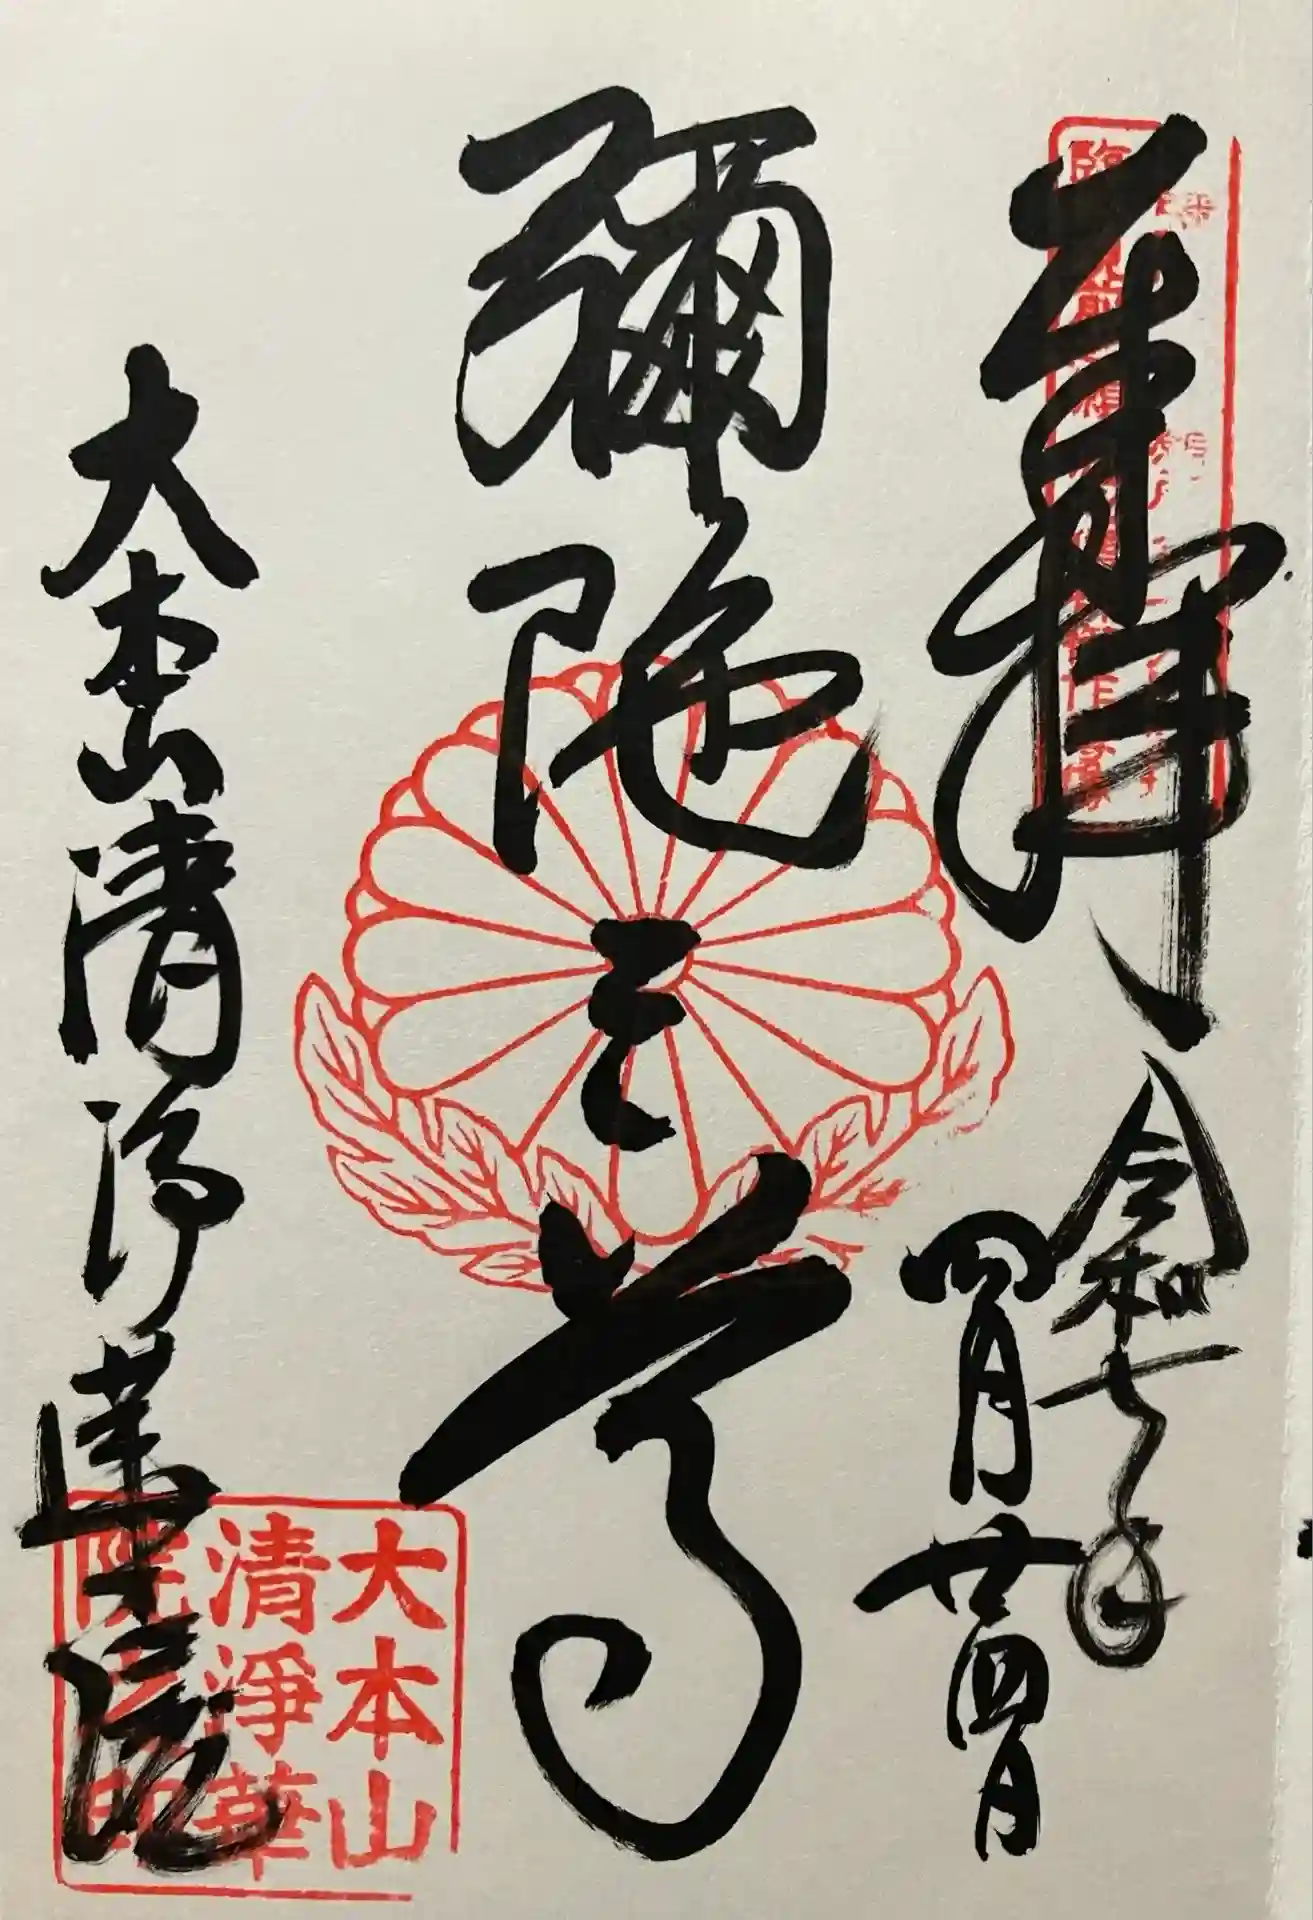 奉拝
令和七年
四月廿四日
彌陀三尊
大本山清浄華院
大本山
清淨華
院之印